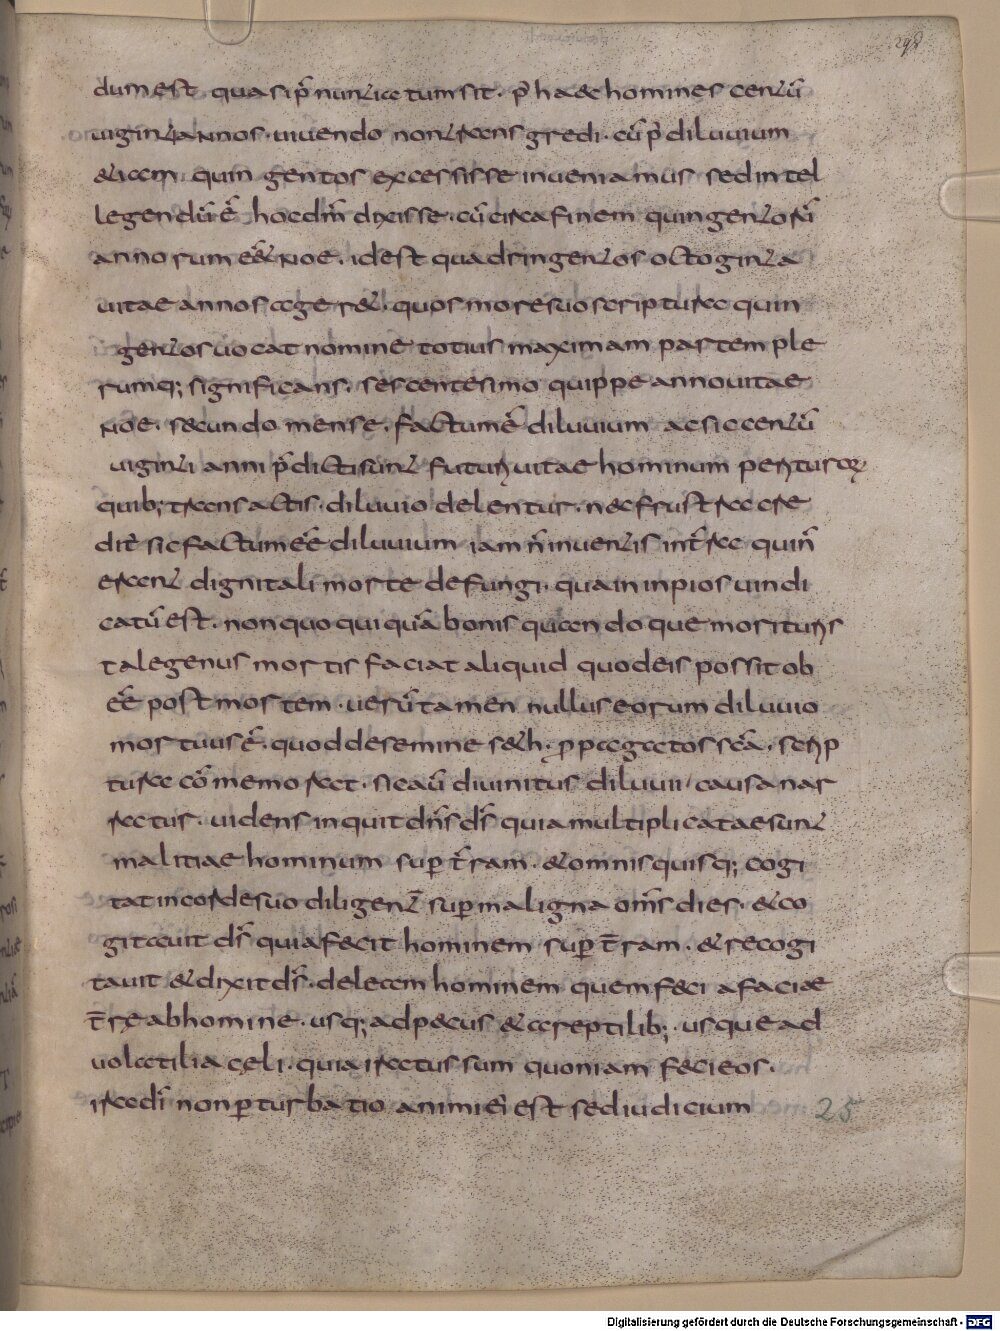 298
dum est quasi p̄nuntiatum sit. p̄ haec homines centū
viginti annos. vivendo non transgredi. cū p̄ diluvium
etiam quingentos excessisse inveniamus sed intel
legendū ē̄ hoc dm̄ dixisse. cū circa finem quingentorū
annorum eēt noe. id est quadringentos octoginta
vitae annos ageret. quos more suo scriptura quin
gentos vocat nomine totius maximam partem ple
rumq; significans. sescentesimo quippe anno vitae
noe. secundo mense. factum ē diluvium ac sic centū
viginti anni p̄dicti sunt futurę vitae hominum periturorꝫ
quib; transactis. diluvio delentur. nec frustra cre
dit̄ sic factum eē diluvium iam n̄ inventis in t̄ra qui n̄
erant digni tali morte defungi. qua in inpios vindi
catū est. non quo quiquā bonis quandoque morituris
tale genus mortis faciat aliquid quod eis possit ob
eē post mortem. verūtamen nullus eorum diluvio
mortuus ē. quod de semine seth. ꝓpagatos sc̄a. scrip
tura cō memorat. sic aū divinitus diluvii. causa nar
ratur. videns inquit dn̄s ds̄ quia multiplicatae sunt
malitiae hominum sup̄ t̄ram. & omnis quisq; cogi
tat in corde suo diligent̄ sup̄ maligna om̄s dies. & co
gitavit ds̄ quia fecit hominem sup̄ t̄ram. & recogi
tavit & dixit ds̄. deleam hominem quem feci a faciae
t̄rę ab homine. usq; ad pecus & a reptilib;. usque ad
volatilia cęli. quia iratus sum quoniam feci eos.
ira dī non ꝑturbatio animi ei' est sed iudicium
25
Digitalisierung gefördert durch die Deutsche Forschungsgemeinschaft - DFG